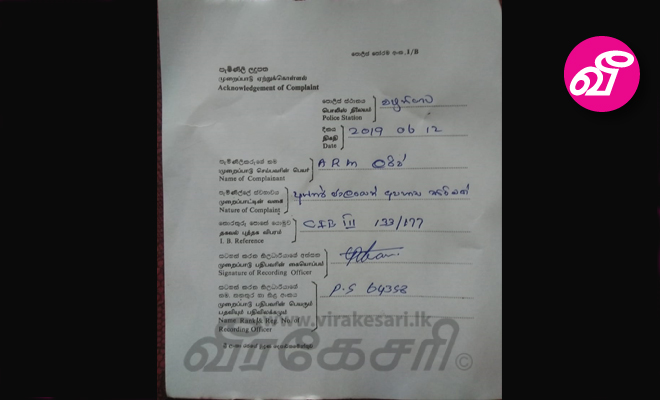 පොලිස් පෝරම අංක 1/B
පැමිණිලි ලදුපත
முறைப்பாடு ஏற்றுக்கொள்ளல்
Acknowledgement of Complaint
பொலிஸ் நிலையம்
Police Station
දිනය
திகதி
Date
2019 06 12
පැමිණිලිකරුගේ නම
முறைப்பாடு செய்பவரின் பெயர்
Name of Complainant
A R M
පැමිණිල්ලේ ස්වභාවය
முறைப்பாட்டின் வகை
Nature of Complaint
தகவல் புத்தக விபரம்
I. B. Reference
CIB III 133/177
සටහන් කරන නිලධාරියාගේ අත්සන
முறைப்பாடு பதிபவரின் கையொப்பம்
Signature of Recording Officer
සටහන් කරන නිලධාරියාගේ
නම, තනතුර හා නිල අංකය
முறைப்பாடு பதிபவரின் பெயரும்
பதவியும் பதிவிலக்கமும்
Name Rank & Reg. No. of
Recording Officer
P.S 64358
www.virakesari.lk
வீரகேசரி ©
வீ